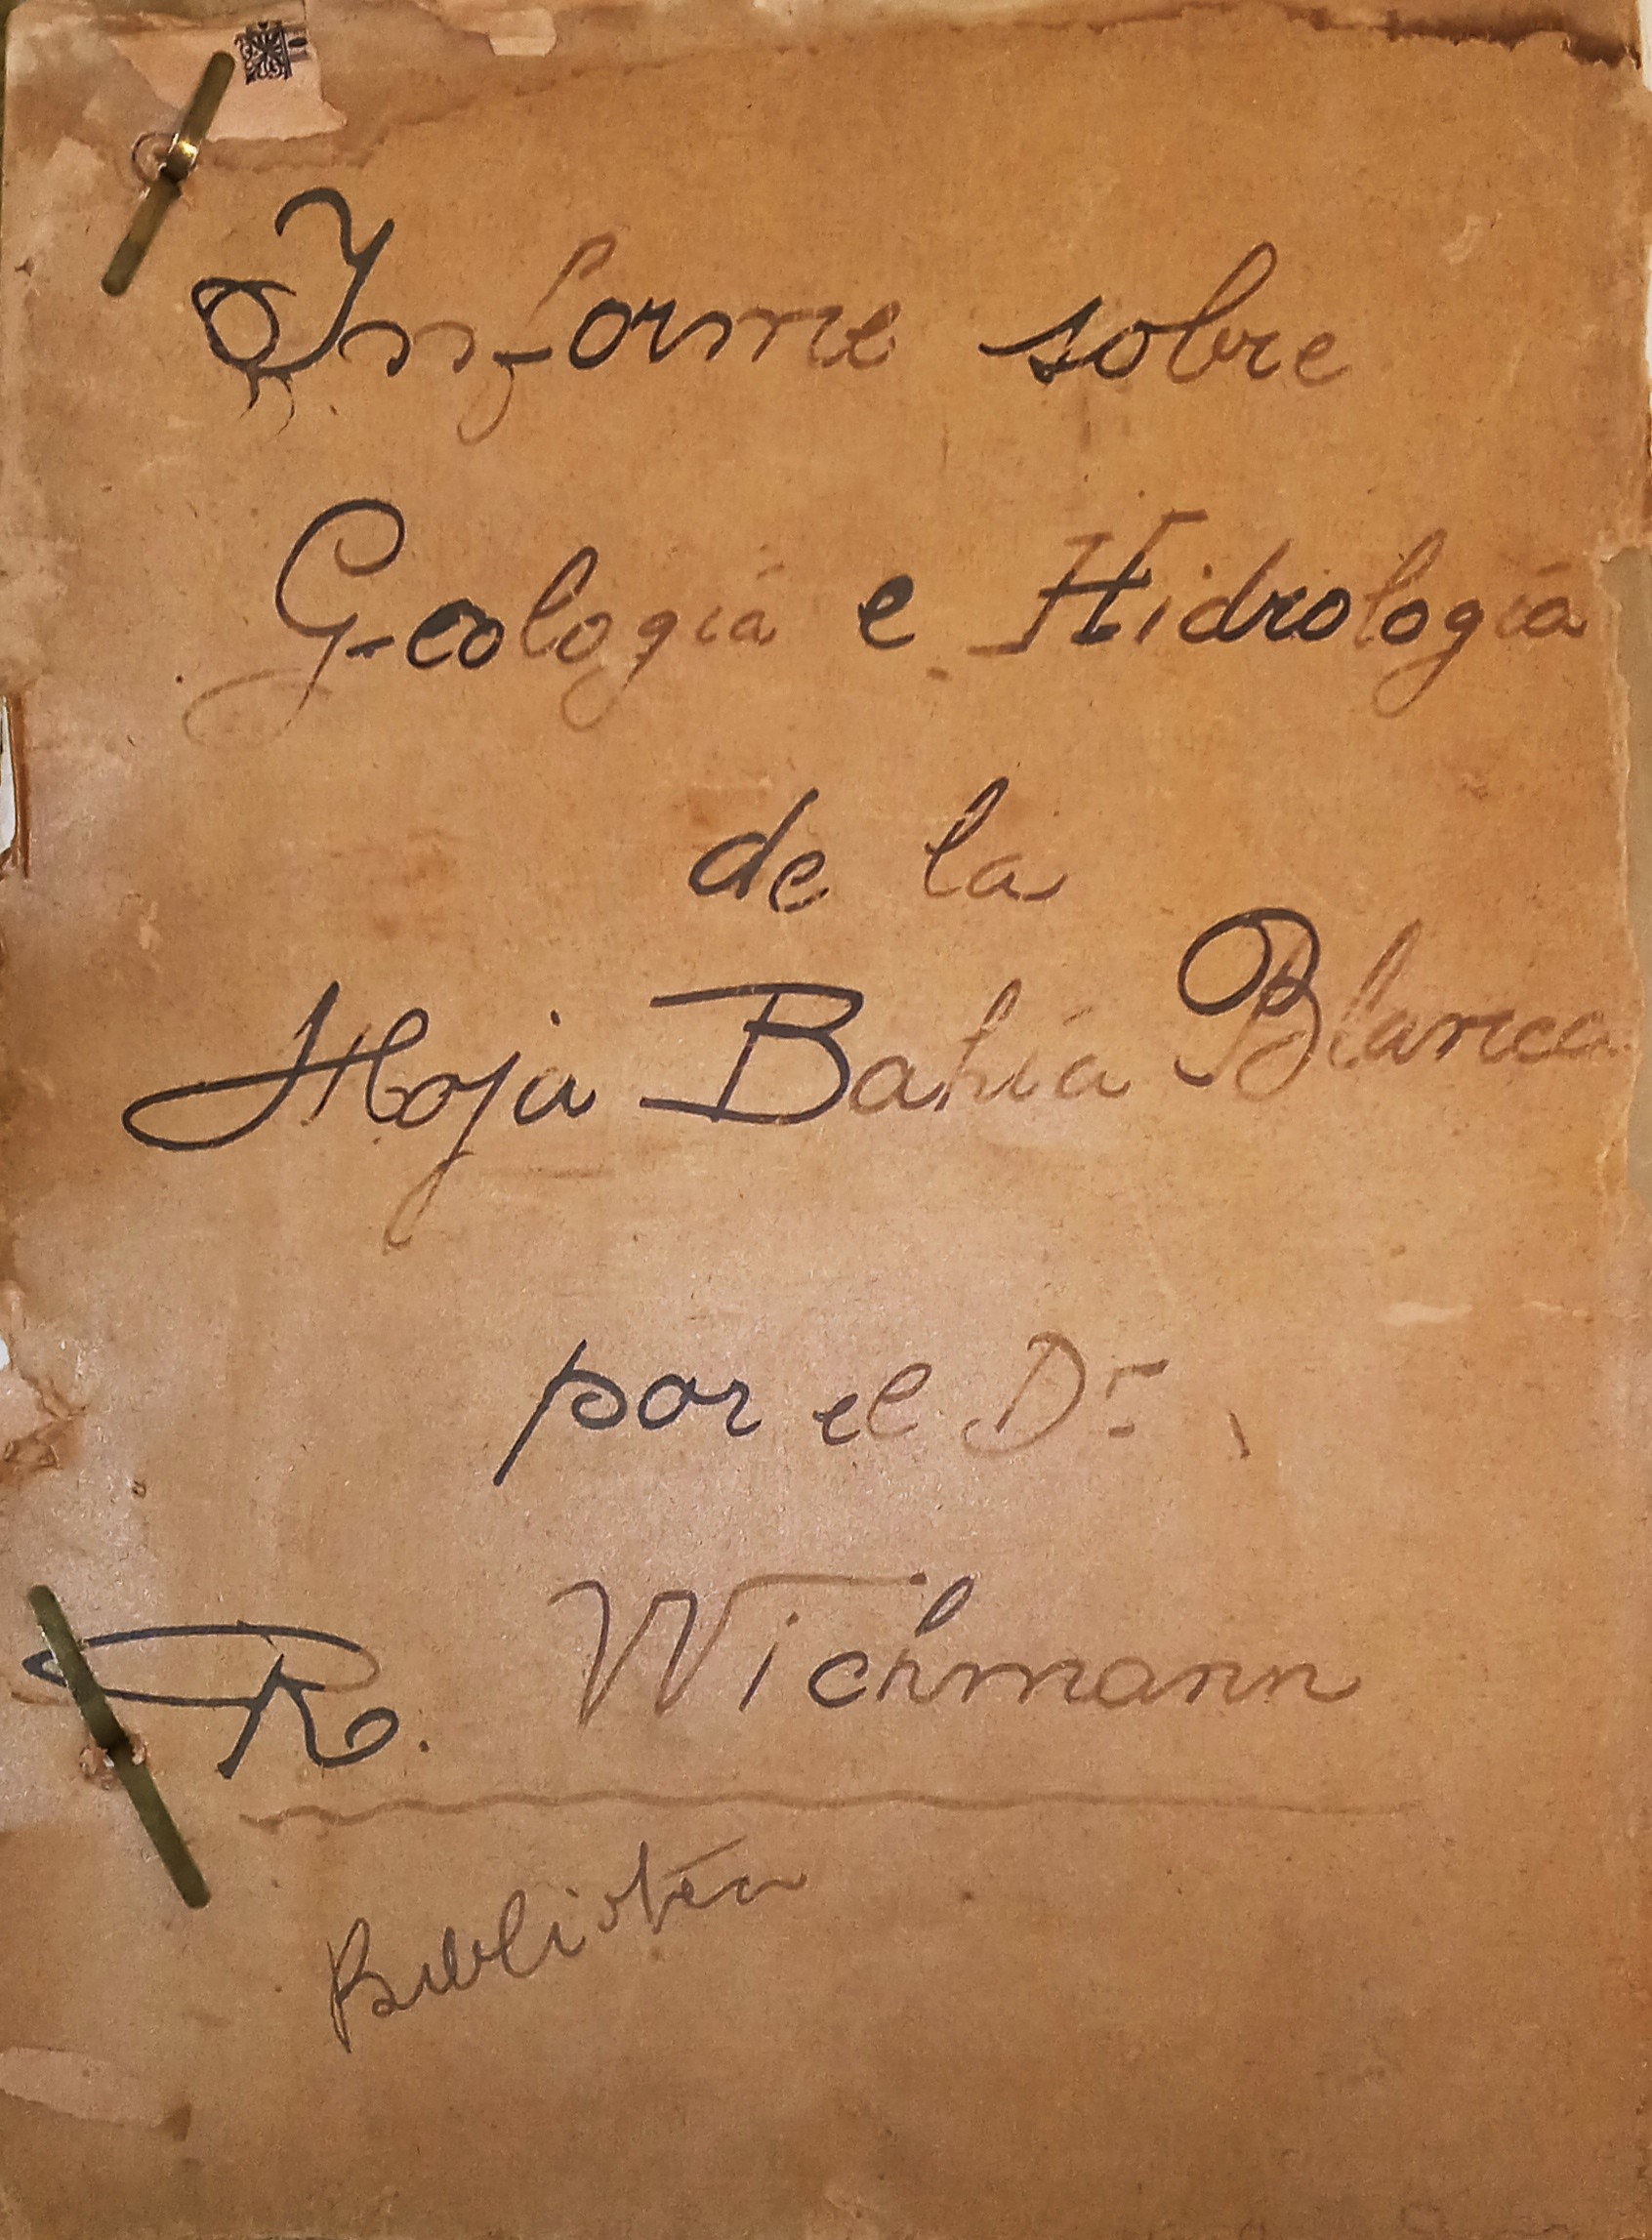 Informe sobre
Geología e Hidrología
de la
Hoja Bahía Blanca
por el Dr
R. Wichmann